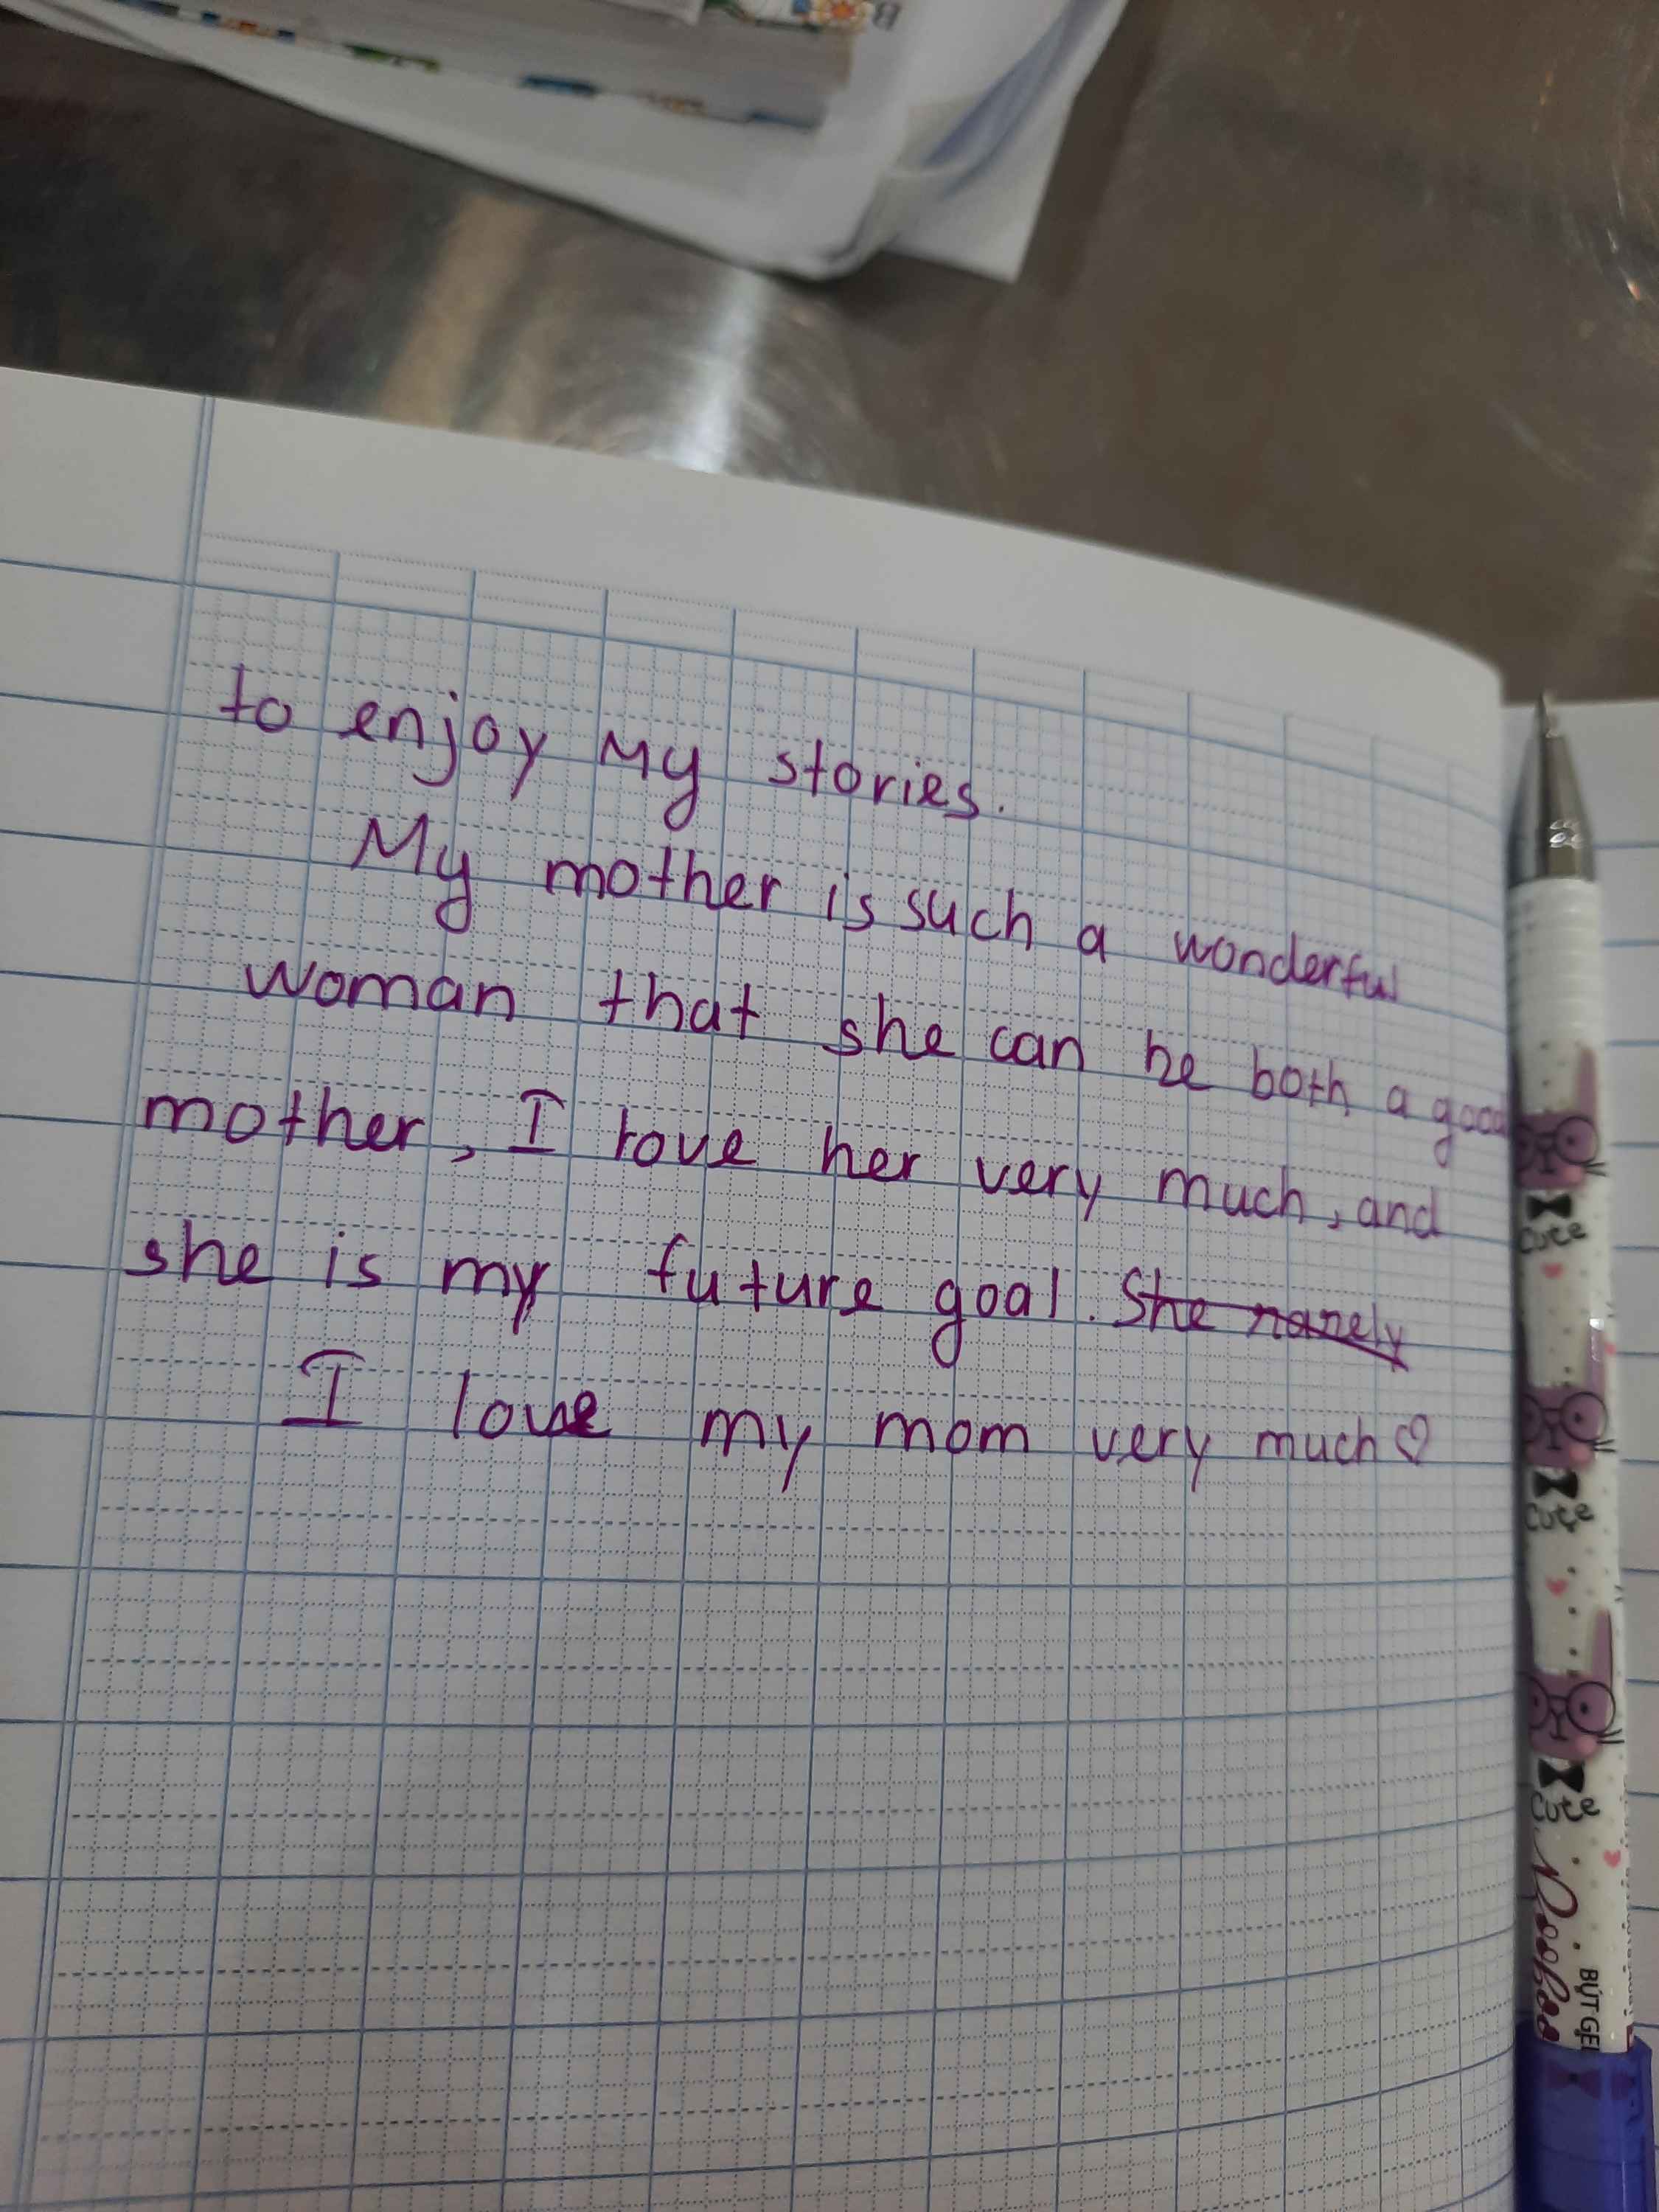 to enjoy my stories.
My mother is such a wonderful
woman that she can be both a good
mother, I love her very much, and
she is my future goal. She rarely
I love my mom very much♡
Cute
Cute
Cute
BÚT GEL